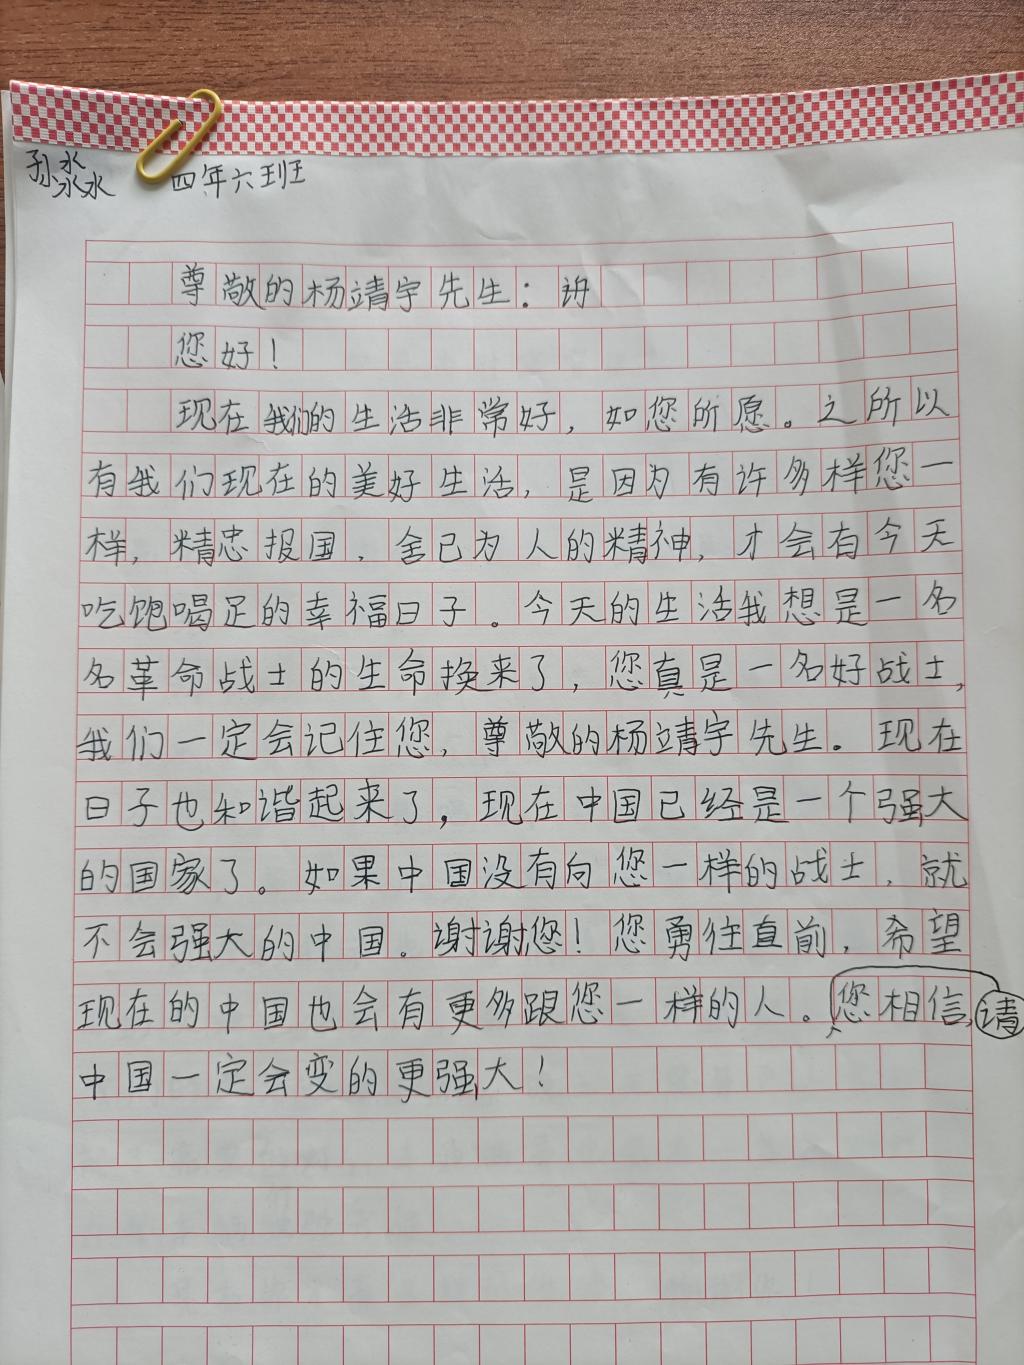 孙淼水 四年六班
尊敬的杨靖宇先生：
您好！
现在我们的生活非常好，如您所愿。之所以
有我们现在的美好生活，是因为有许多样您一
样，精忠报国，舍己为人的精神，才会有今天
吃饱喝足的幸福日子。今天的生活我想是一名
名革命战士的生命换来了，您真是一名好战士，
我们一定会记住您，尊敬的杨靖宇先生。现在
日子也和谐起来了，现在中国已经是一个强大
的国家了。如果中国没有向您一样的战士，就
不会强大的中国。谢谢您！您勇往直前，希望
现在的中国也会有更多跟您一样的人。请您相信，
中国一定会变的更强大！